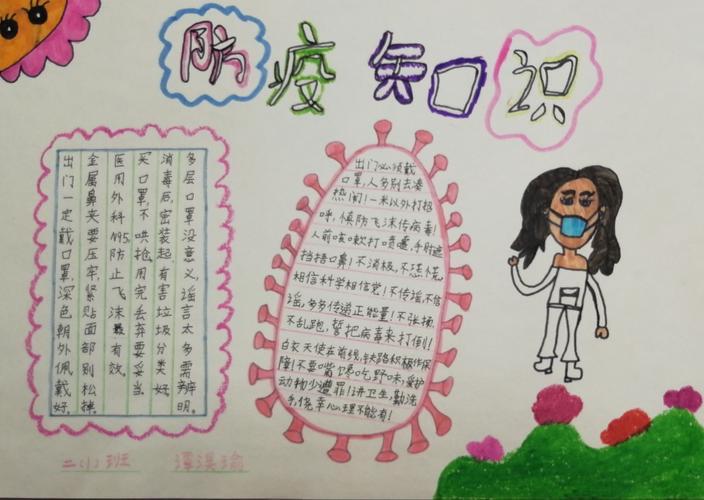 防疫知识
出门一定戴口罩,深色朝外佩戴好,
金属鼻夹要压牢,紧贴面部别松掉
医用外科N95,防止飞沫最有效。
买口罩,不哄抢,用完丢弃要妥当
消毒后,密装起,有害垃圾分类好
多层口罩没意义,谣言太多需辨明。
出门必须戴
口罩,人多别去凑
热闹!一米以外打招
呼,慎防飞沫传病毒!
人前咳嗽打喷嚏,手肘遮
挡捂口鼻!不消极,不恐慌,
相信科学相信党!不传谣,不信
谣,多多传递正能量!不张扬,
不乱跑,誓把病毒来打倒!
白衣天使在前线,铁路积极作保
障!不要嘴馋吃野味,爱护
动物少遭罪!讲卫生,勤洗
手,侥幸心理不能有!
二(1)班